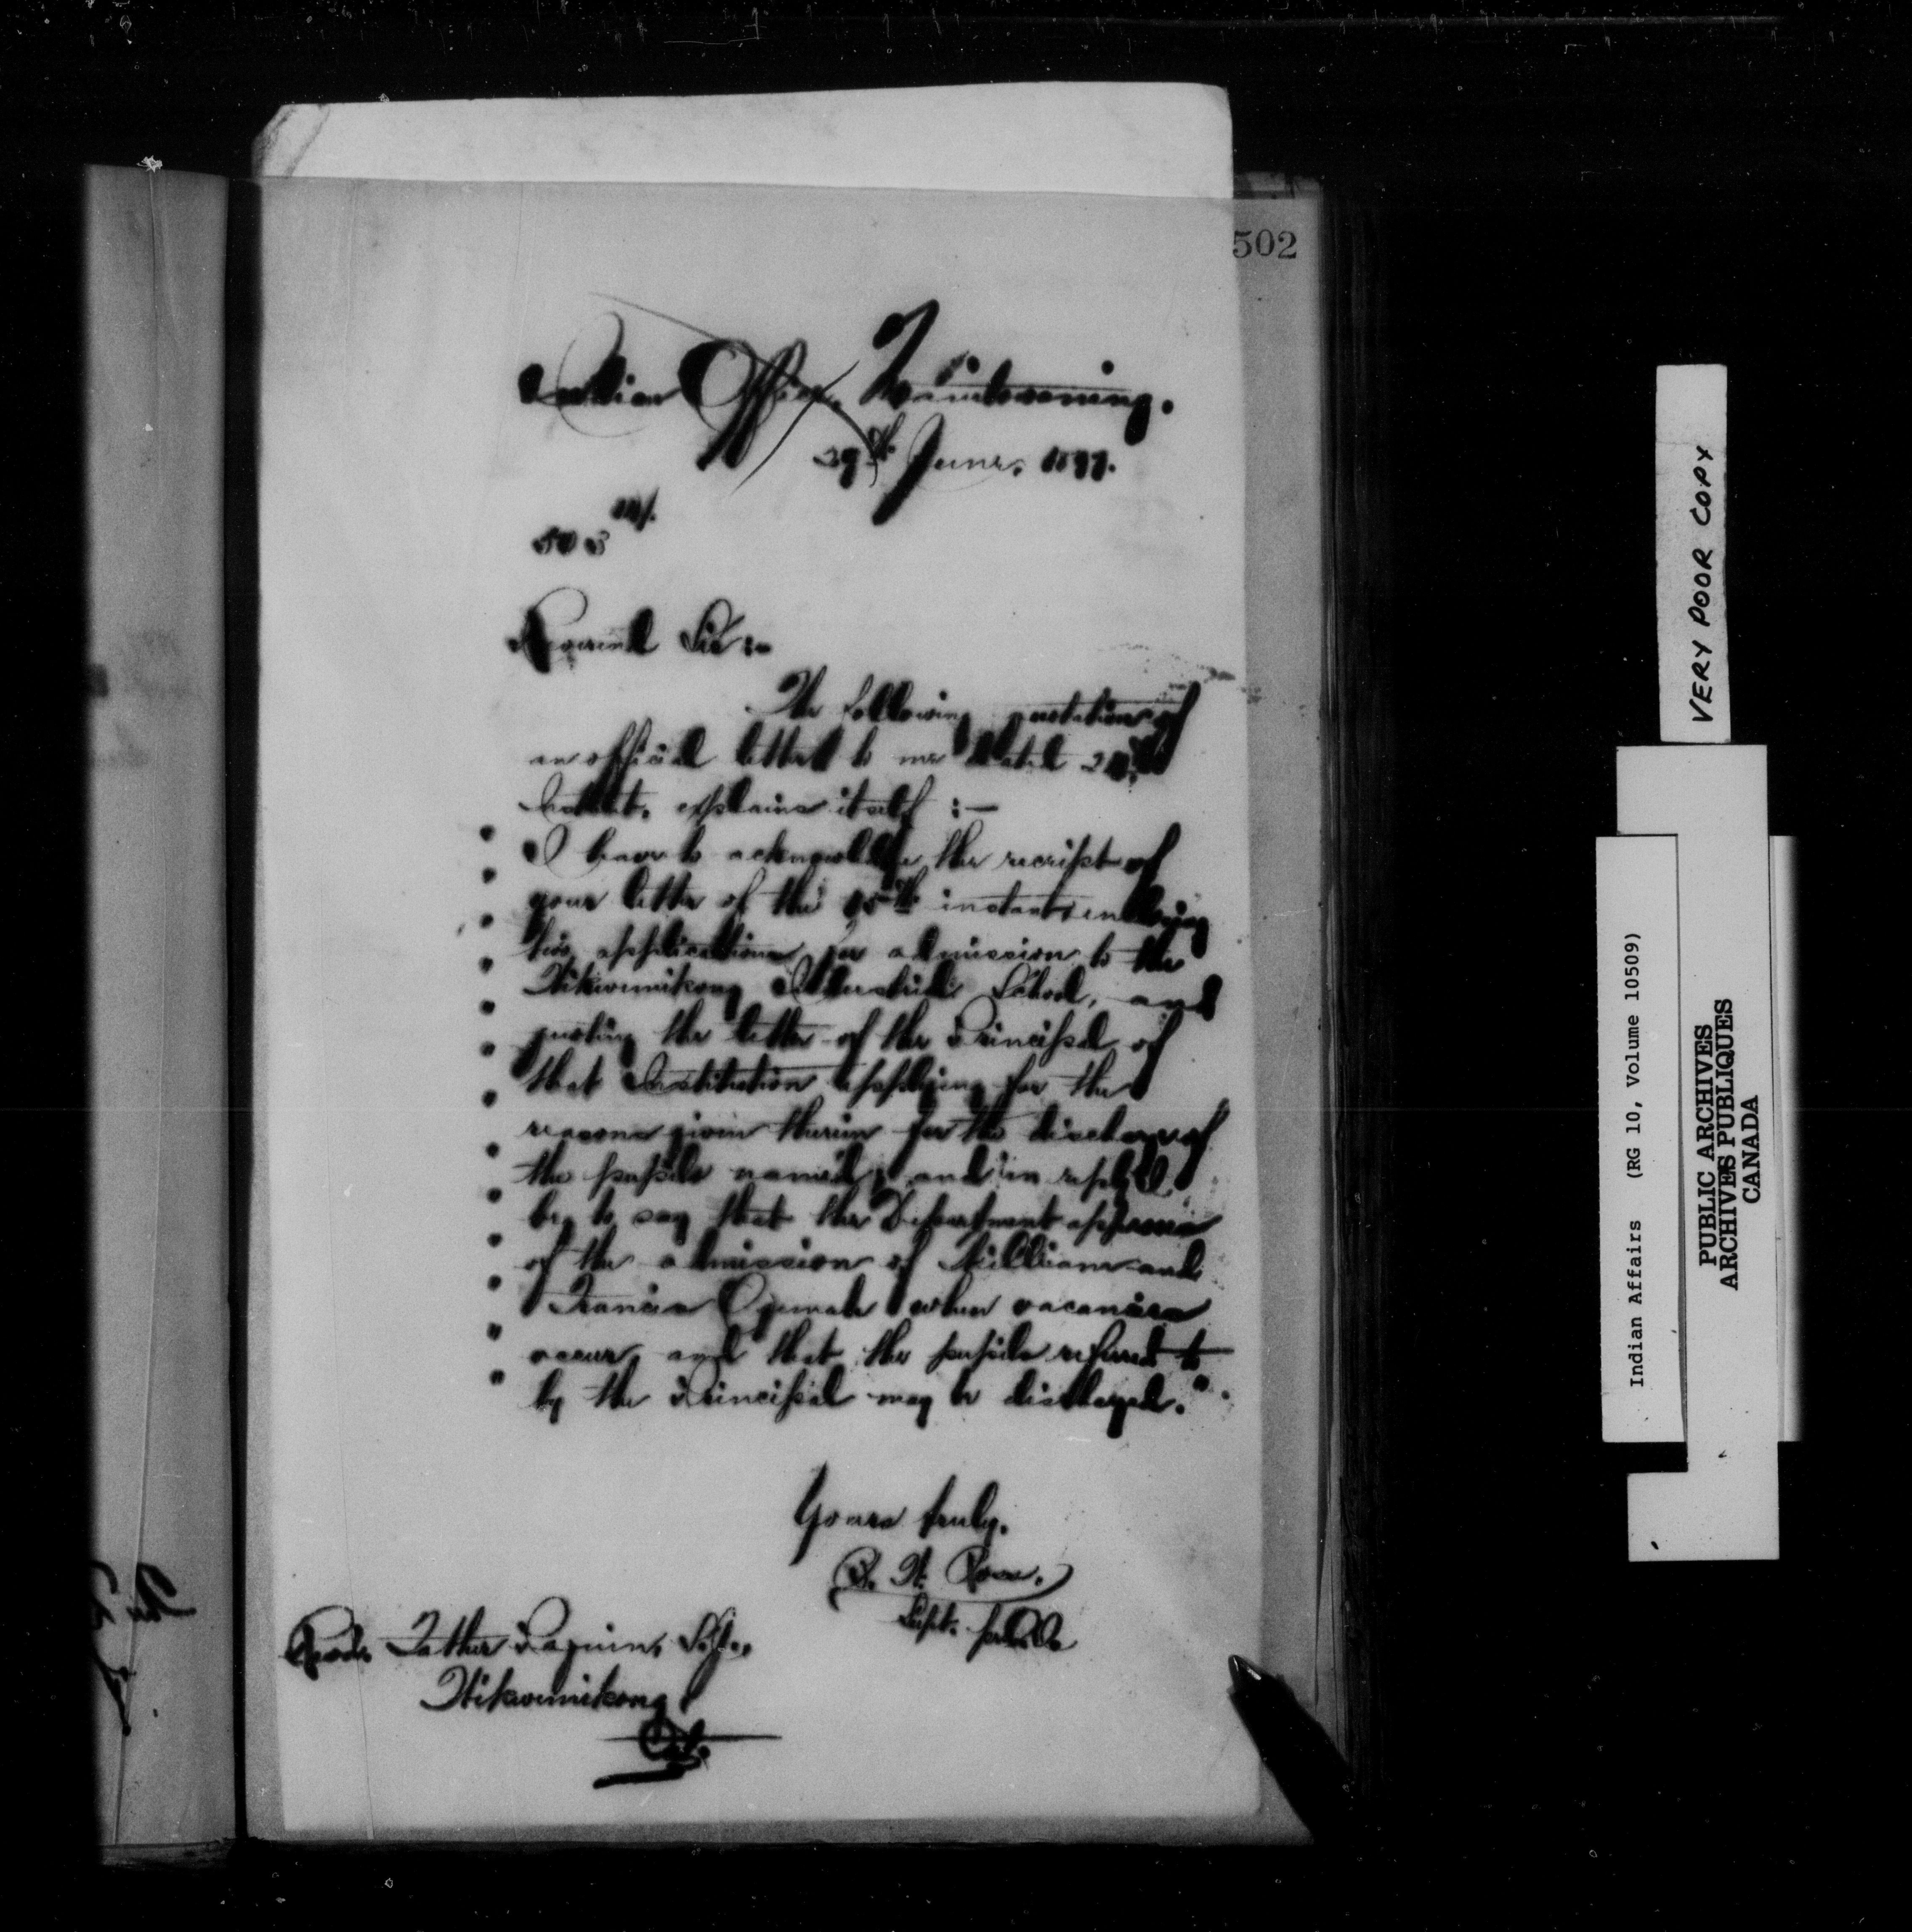 502
Indian Office, Manitowaning.
29th June, 1897.
Reverend Sir:-
The following quotation of
an official letter to me dated
Instant, explains itself :-
" I have to acknowledge the receipt of
" your letter of the 15th instant enclosing
" two applications for admission to the
" Wikwemikong Industrial School, and
" quoting the letter of the Principal of
" that Institution applying for the
" reasons given therein for the discharge of
" the pupils named, and in reply I
" beg to say that the Department approves
" of the admission of William and
" Francis when vacancies
" occur, and that the pupils referred to
" by the Principal may be discharged."
Yours truly,
B. W. Ross.
Supt.
Revd. Father Paquin, S.J.,
Wikwemikong
Ont.
VERY POOR COPY
Indian Affairs (RG 10, Volume 10509)
PUBLIC ARCHIVES
ARCHIVES PUBLIQUES
CANADA